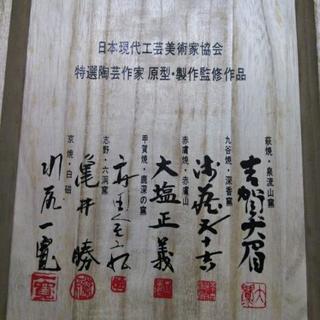 日本現代工芸美術家協会
特選陶芸作家 原型・製作監修作品
萩焼・泉流山窯
吉賀大眉
九谷焼・深香窯
浅蔵五十吉
赤膚焼・赤膚山
大塩正義
甲賀焼・鹿深の窯
志野・六洞窯
亀井勝
京焼・白磁
水尻一寛